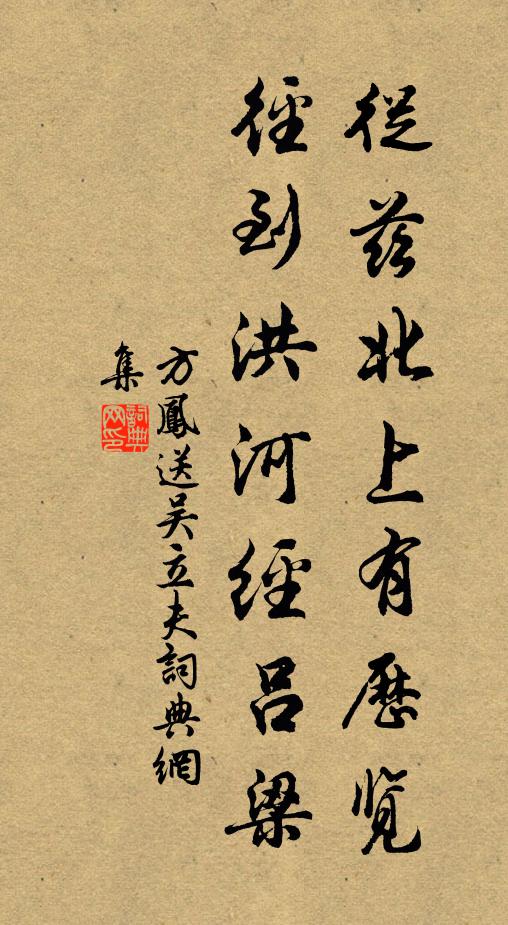 從茲北上有歷覽
徑到洪河經呂梁
方鳳送吴立夫詞典網
集
詞典网印